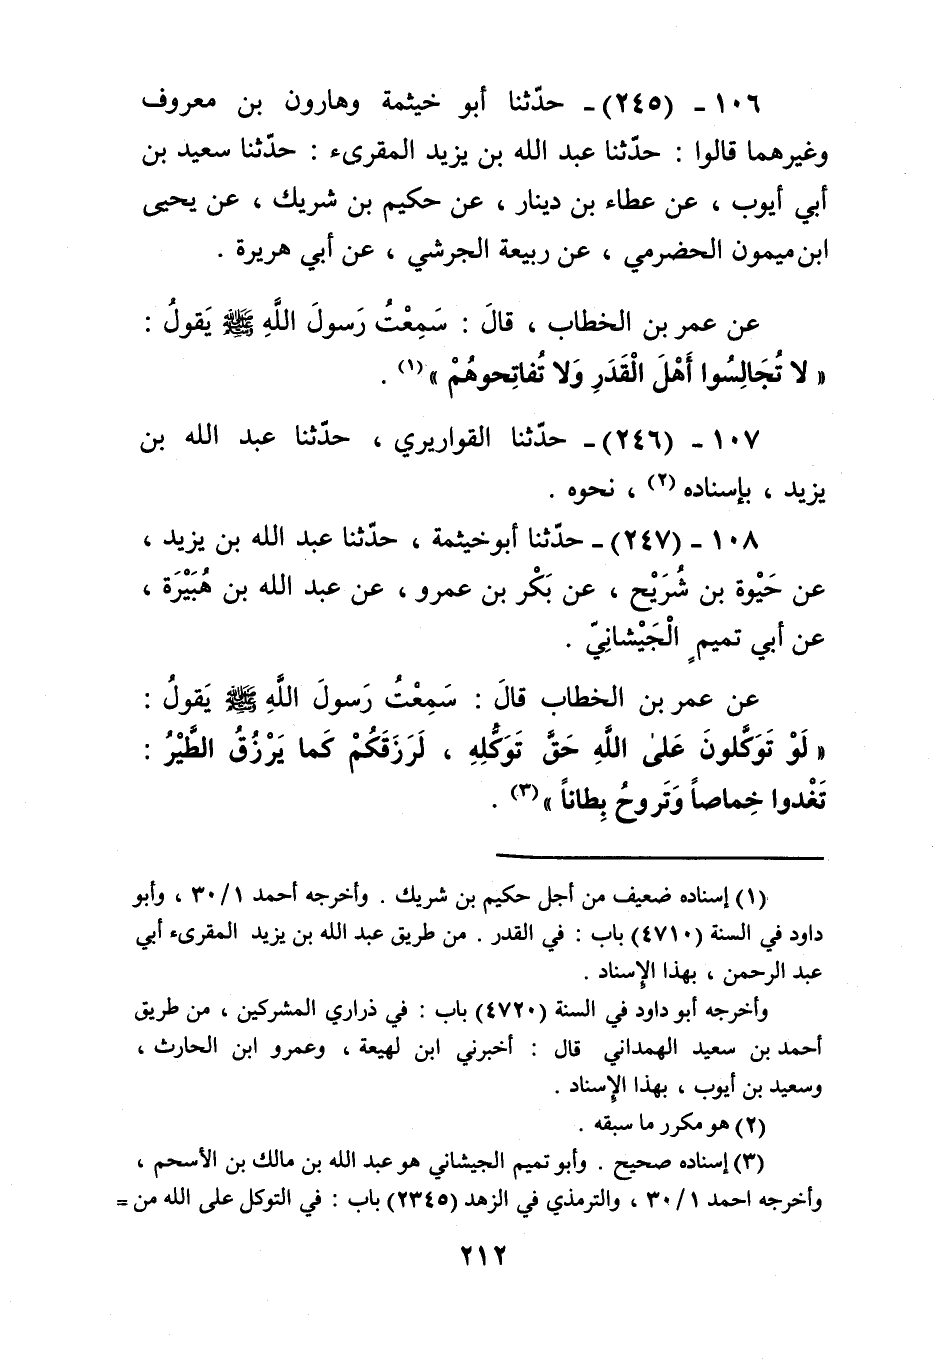 ١٠٦ ـ (٢٤٥) ـ حدّثنا أبو خيثمة وهارون بن معروف
وغيرهما قالوا : حدّثنا عبد الله بن يزيد المقرىء : حدّثنا سعيد بن
أبي أيوب ، عن عطاء بن دينار ، عن حكيم بن شريك ، عن يحيى
ابن ميمون الحضرمي ، عن ربيعة الجرشي ، عن أبي هريرة .
عن عمر بن الخطاب ، قالَ : سَمِعْتُ رَسولَ اللَّهِ ﷺ يَقولُ :
« لا تُجَالِسُوا أَهْلَ الْقَدَرِ وَلا تُفاتِحوهُمْ »(١) .
١٠٧ ـ (٢٤٦) ـ حدّثنا القواريري ، حدّثنا عبد الله بن
يزيد ، بإسناده (٢) ، نحوه .
١٠٨ ـ (٢٤٧) ـ حدّثنا أبوخيثمة ، حدّثنا عبد الله بن يزيد ،
عن حَيْوة بن شُرَيْح ، عن بَكْر بن عمرو ، عن عبد الله بن هُبَيْرَة ،
عن أبي تميمٍ الْجَيْشانِيّ .
عن عمر بن الخطاب قالَ : سَمِعْتُ رَسولَ اللَّهِ ﷺ يَقولُ :
« لَوْ تَوَكَّلونَ عَلىٰ اللَّهِ حَقَّ تَوَكُّلِهِ ، لَرَزَقَكُمْ كَما يَرْزُقُ الطَّيْرُ :
تَغْدوا خِماصاً وَتَروحُ بِطاناً »(٣) .
(١) إسناده ضعيف من أجل حكيم بن شريك . وأخرجه أحمد ١ / ٣٠ ، وأبو
داود في السنة (٤٧١٠) باب : في القدر . من طريق عبد الله بن يزيد المقرىء أبي
عبد الرحمن ، بهذا الإِسناد .
وأخرجه أبو داود في السنة (٤٧٢٠) باب : في ذراري المشركين ، من طريق
أحمد بن سعيد الهمداني قال : أخبرني ابن لهيعة ، وعمرو ابن الحارث ،
وسعيد بن أيوب ، بهذا الإِسناد .
(٢) هو مكرر ما سبقه .
(٣) إسناده صحيح . وأبو تميم الجيشاني هو عبد الله بن مالك بن الأسحم ،
وأخرجه احمد ١ / ٣٠ ، والترمذي في الزهد (٢٣٤٥) باب : في التوكل على الله من =
٢١٢